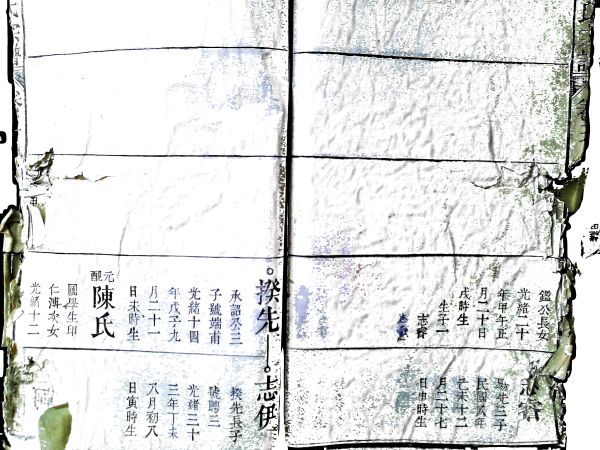 鑑公長女
光緒二十
年甲午正
月二十日
戌時生
生子一
志睿
志睿
揆先三子
民國八年
己未十二
月二十七
日申時生
揆先
志伊
承詔公三
子號端甫
光緒十四
年戊子九
月二十一
日未時生
元配
陳氏
國學生印
仁溥次女
光緒十二
揆先長子
號聘三
光緒三十
三年丁未
八月初八
日寅時生